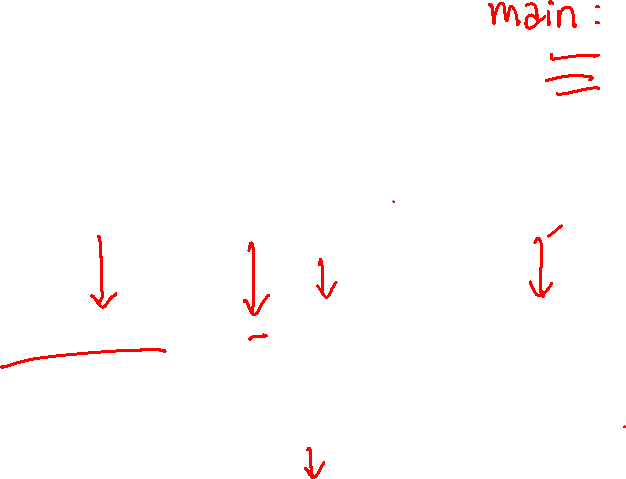 main :